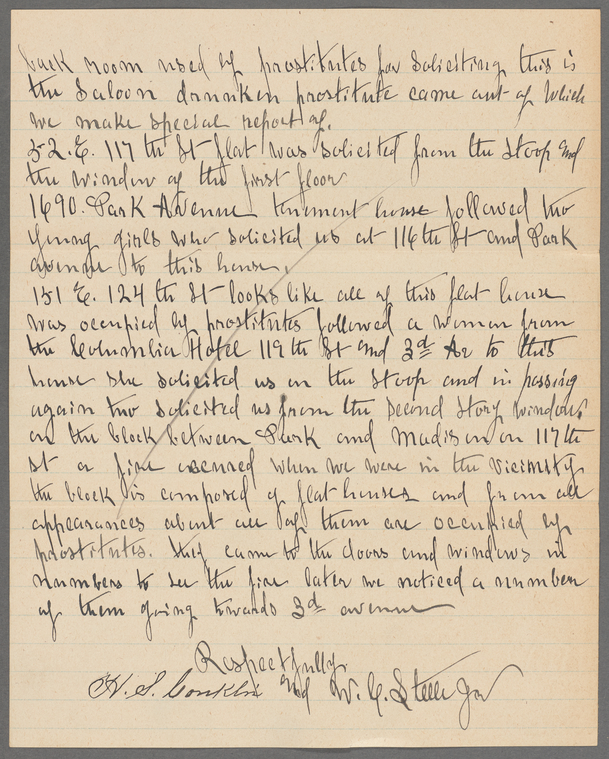 back room used by prostitutes for soliciting this is
the saloon drunken prostitute came out of which
we make special report of.
52. E. 117 th St flat was solicited from the stoop and
the window of the first floor
1690. Park Avenue tenement house followed two
young girls who solicited us at 116th St and Park
avenue to this house.
151 E. 124 th St looks like all of this flat house
was occupied by prostitutes followed a woman from
the Columbia Hotel 119 th St and 3d Av to this
house she solicited us on the stoop and in passing
again two solicited us from the second story windows
on the block between Park and Madison on 117 th
St a fire occured when we were in the vicinity
the block is composed of flat houses and from all
appearances about all of them are occupied by
prostitutes. they came to the doors and windows in
numbers to see the fire later we noticed a number
of them going towards 3d avenue
Respectfully
H. S. Conklin and W. C. Steele Jr